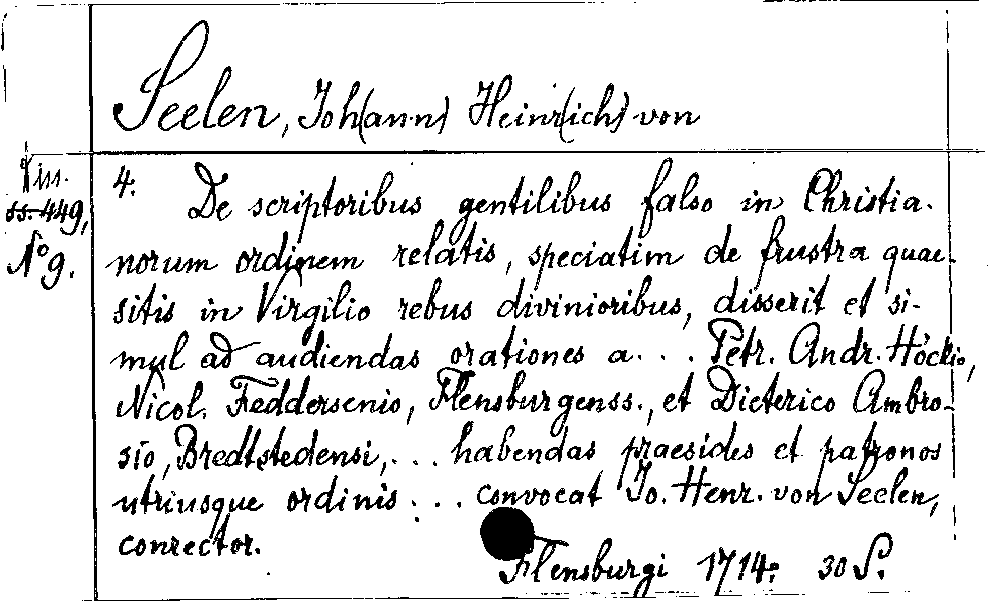 Seelen, Joh(ann) Heinr(ich) von
Vin.
ss. 449,
No 9.
4. De scriptoribus gentilibus falso in Christia-
norum ordinem relatis, speciatim de frustra quae-
sitis in Virgilio rebus divinioribus, disserit et si-
mul ad audiendas orationes a... Petr. Andr. Höckio,
Nicol. Feddersenio, Flensburgenss., et Dieterico Ambro-
sio, Bredtstedensi,... habendas praesides et patronos
utriusque ordinis... convocat Jo. Henr. von Seelen,
conrector.
Flensburgi 1714. 30 S.